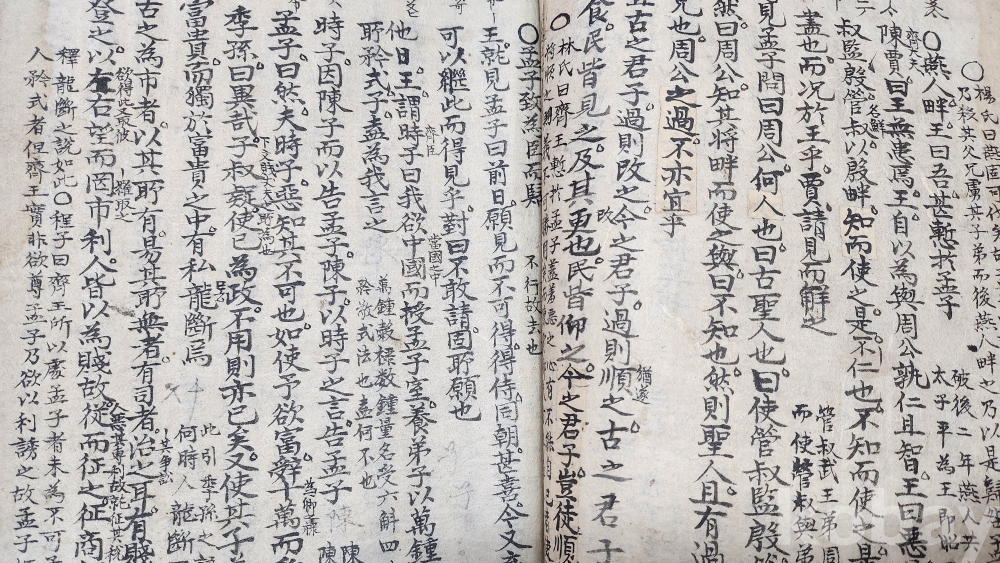 楊氏曰燕固可伐矣故
乃殺其父兄虜其子弟而後燕人畔也乃以是
○燕人畔王曰吾甚慙於孟子
破後二年燕人共
太子平為王即昭
齊大夫
陳賈曰王無患焉王自以為與周公孰仁且智王曰惡
叔監殷管叔以殷畔知而使之是不仁也不知而使之是
名鮮
管叔武王弟周
而使管叔與弟
盡也而況於王乎賈請見而解之
見孟子問曰周公何人也曰古聖人也曰使管叔監殷管
然曰周公知其將畔而使之與曰不知也然則聖人且有過
兄也周公之過不亦宜乎
且古之君子過則改之今之君子過則順之古之君子
猶遂
食民皆見之及其更也民皆仰之今之君子豈徒順
○林氏曰齊王慙於孟子蓋羞惡之心有不能自已
○孟子致為臣而歸
不行故去也
王就見孟子曰前日願見而不可得得侍同朝甚喜今又
可以繼此而得見乎對曰不敢請固所願也
齊臣
當國之中
他日王謂時子曰我欲中國而授孟子室養弟子以萬鍾
矜式子盍為我言之
萬鍾穀祿數鍾量名受六斛四
矜敬式法也盍何不也
時子因陳子而以告孟子陳子以時子之言告孟子
孟子曰然夫時子惡知其不可也如使予欲富辭十萬而
季孫曰異哉子叔疑使已為政不用則亦已矣又使其子弟
富貴而獨於富貴之中有私龍斷焉
此引季孫之
何時人龍斷
古之為市者以其所有易其所無者有司者治之耳有賤
登之以左右望而罔市利人皆以為賤故從而征之征商
釋龍斷之說如此○程子曰齊王所以處孟子者未為不可
人矜式者但齊王實非欲尊孟子乃欲以利誘之故孟子